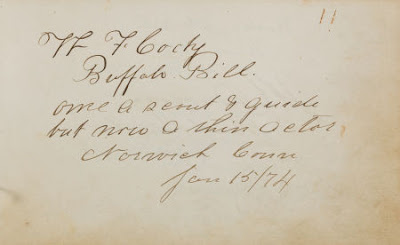 11
W F Cody
Buffalo Bill.
once a scout & guide
but now a thin actor
Norwich Conn
Jan 15/74